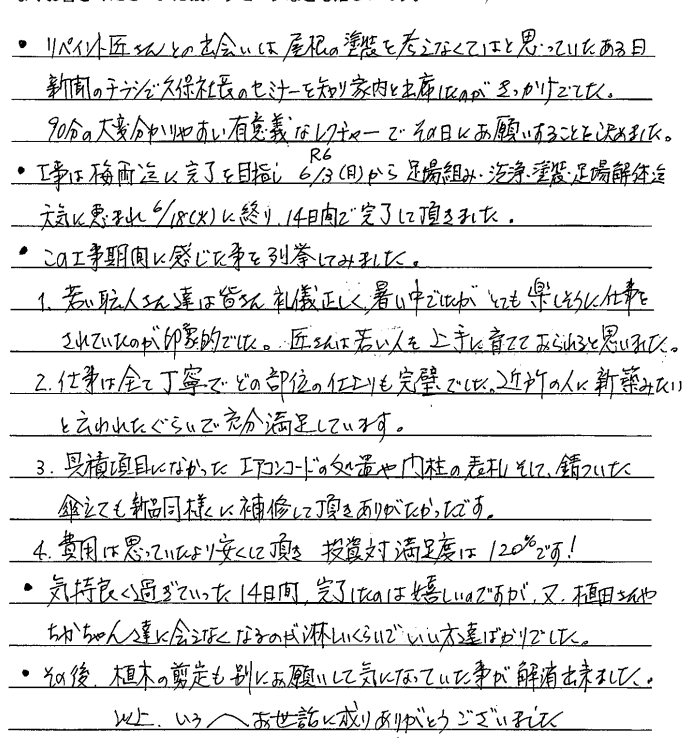 ・リペイント匠さんとの出会いは屋根の塗装を考えなくてはと思っていたある日
新聞のチラシで久保社長のセミナーを知り家内と出席したのがきっかけでした。
90分の大変分かりやすい有意義なレクチャーでその日にお願いすることを決めました。
・工事は梅雨迄に完了を目指し R6 6/3(月)から 足場組み・洗浄・塗装・足場解体迄
天気に恵まれ 6/18(火)に終り、14日間で完了して頂きました。
・この工事期間に感じた事を列挙してみました。
1. 若い職人さん達は皆さん礼儀正しく、暑い中でしたが とても楽しそうに仕事を
されていたのが印象的でした。匠さんは若い人を上手に育てておられると思いました。
2. 仕事は全て丁寧でどの部位の仕上りも完璧でした。近所の人に新築みたい
と云われたぐらいで充分満足しています。
3. 見積項目になかった エアコンコードの処置や門柱の表札そして、錆ついた
傘立ても新品同様に補修して頂きありがたかったです。
4. 費用は思っていたより安くして頂き 投資対満足度は120%です!
・気持良く過ぎていった14日間、完了したのは嬉しいのですが、又、植田さんや
ちかちゃん達に会えなくなるのが淋しいくらいでいい方達ばかりでした。
・その後、植木の剪定も別にお願いして気になっていた事が解消出来ました。
以上、いろへお世話に成りありがとうございました